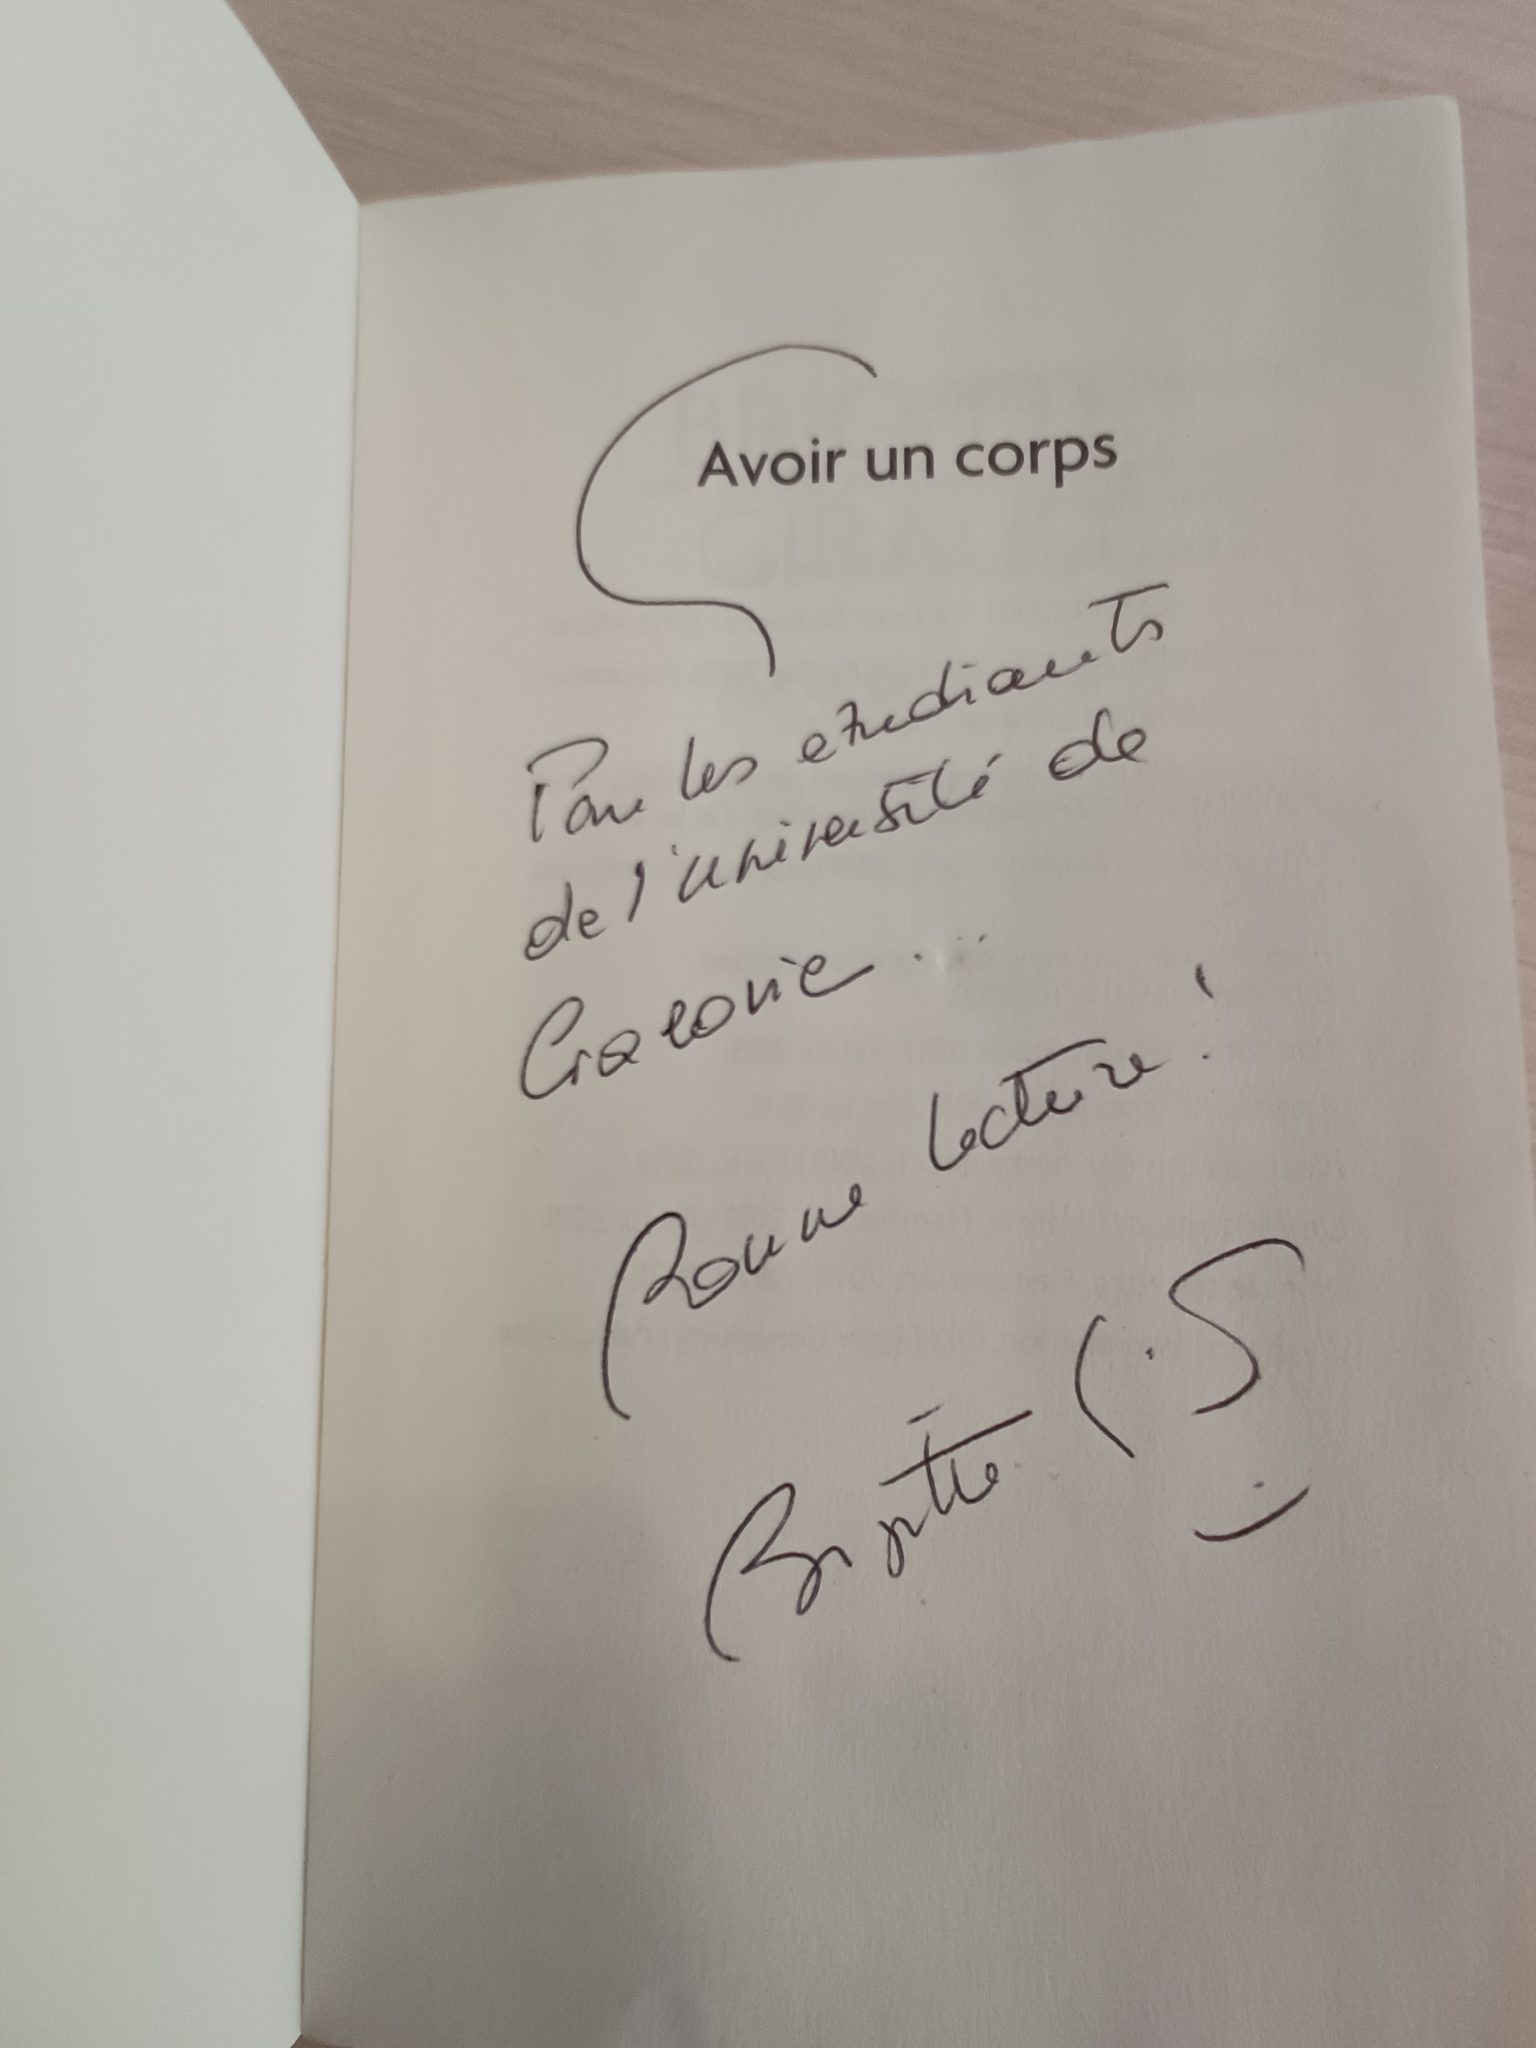 Avoir un corps
Pour les etudiants
de l'université de
Cracovie...
Bonne lecture !
Brigitte